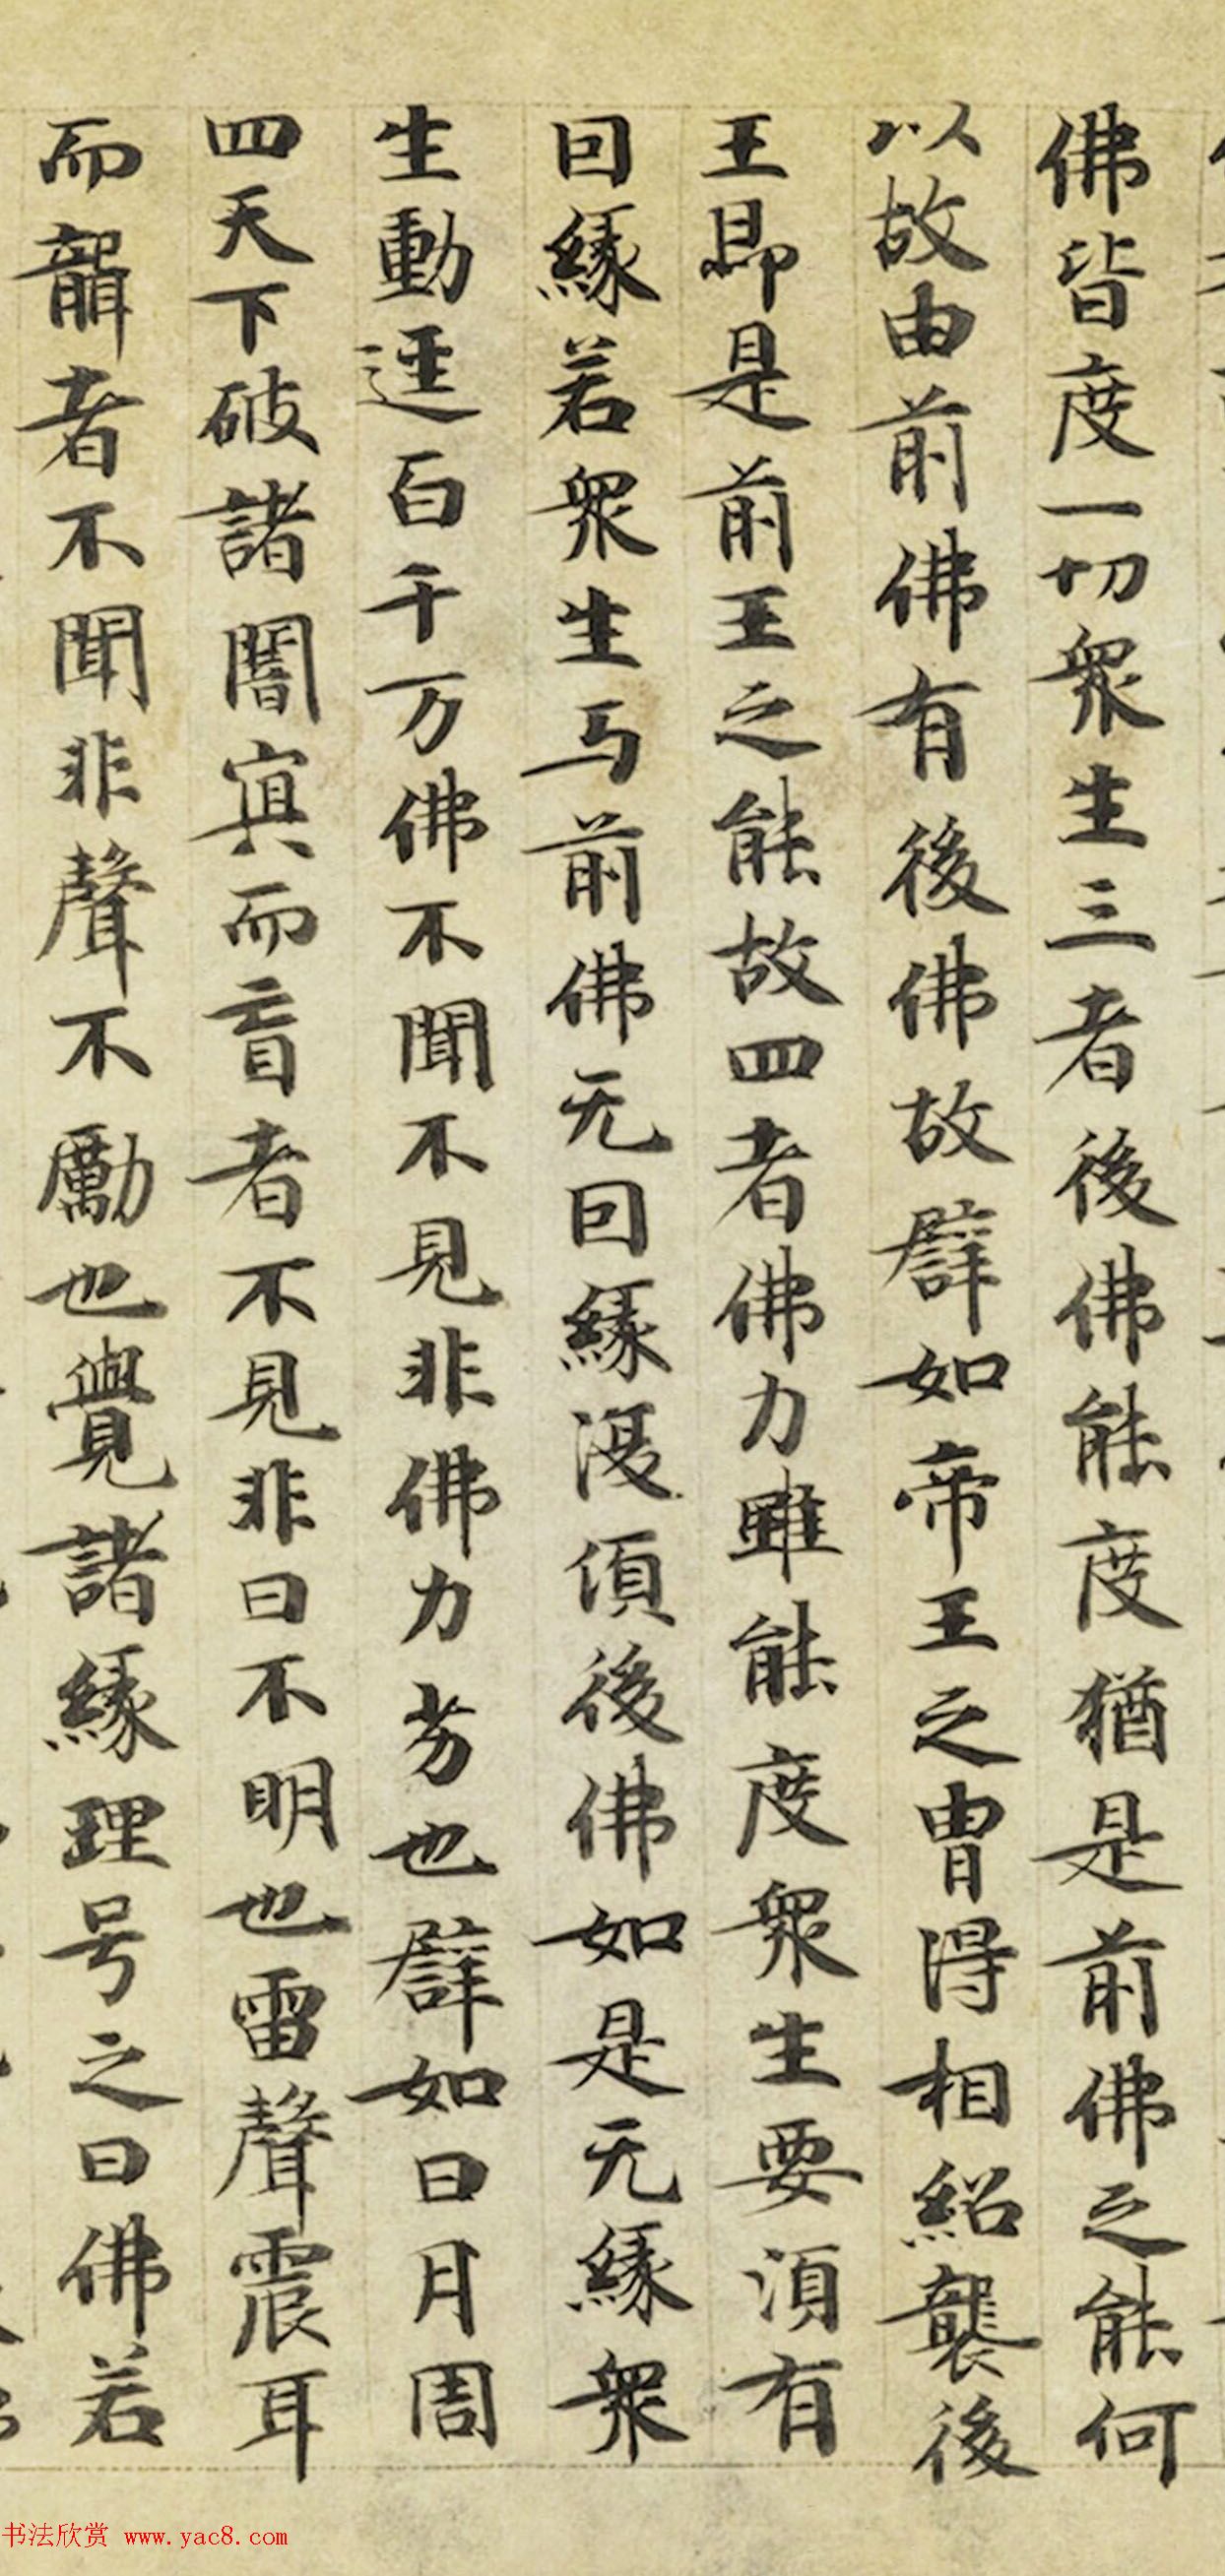 佛皆度一切衆生三者後佛能度猶是前佛之能何
以故由前佛有後佛故譬如帝王之胄得相紹襲後
王即是前王之能故四者佛力雖能度衆生要須有
因緣若衆生与前佛无因緣復須後佛如是无緣衆
生動逕百千万佛不聞不見非佛力劣也譬如日月周
四天下破諸闇冥而盲者不見非日不明也雷聲震耳
而聾者不聞非聲不勵也覺諸緣理号之曰佛若
书法欣赏 www.yac8.com